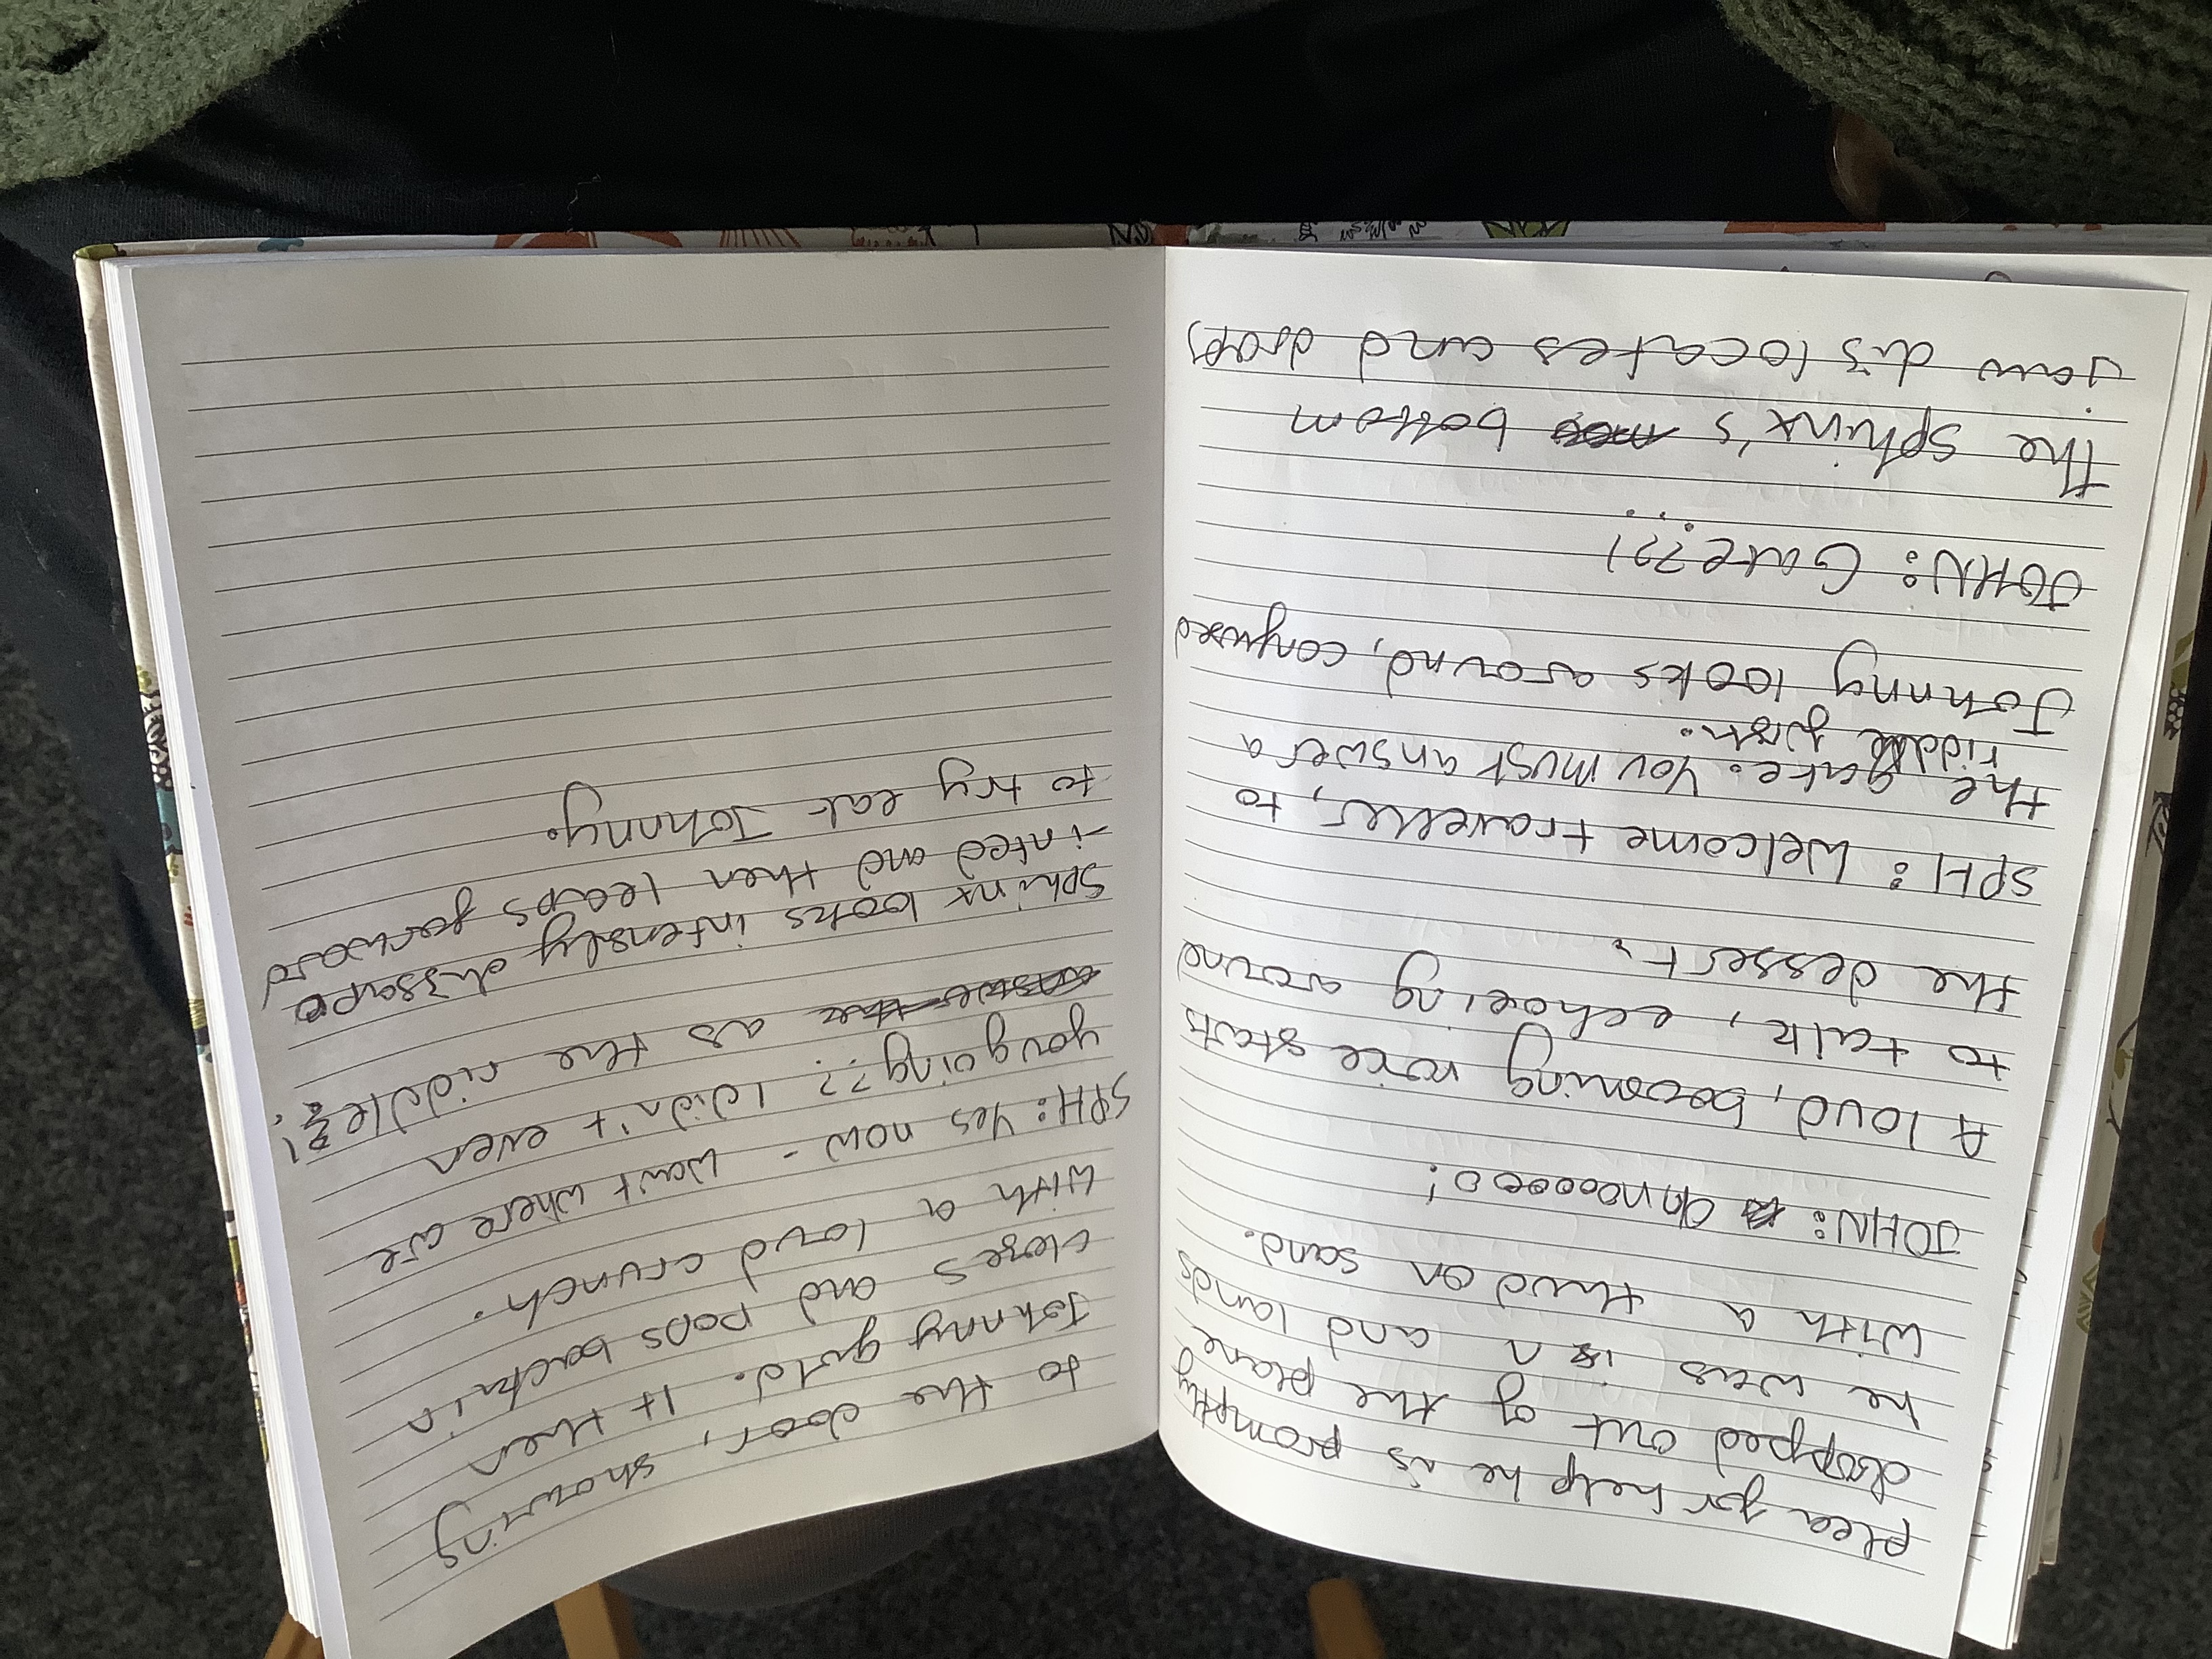 plea for help he is promptly
dropped out of the plane
he was in and lands
with a thud on sand.
JOHN: Ohnooooo!
A loud, becoming voice starts
to talk, echoeing around
the dessert.
SPH: Welcome traveller, to
the gate. You must answer a
riddle first.
Johnny looks around, confused
JOHN: Gate??!
The sphinx's bottom
jaw dislocates and drops
to the door, showing
Johnny gold. It then
closes and pops back in
with a loud crunch.
SPH: Yes now - wait where are
you going?? I didn't even
as the riddle?!
Sphinx looks intensly dissapo
-inted and then leaps forward
to try eat Johnny.